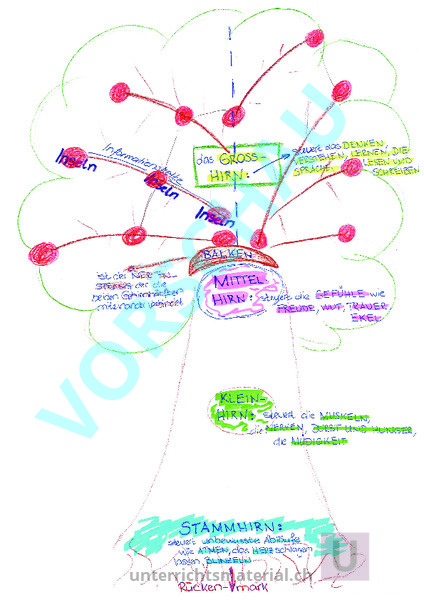 das GROSS-
HIRN:
steuert das DENKEN,
VERSTEHEN, LERNEN, DIE
SPRACHE, LESEN UND
SCHREIBEN
Informations
Inseln
Inseln
Inseln
BALKEN
ist der
der die
beiden Gehirnhälften
miteinander verbindet
MITTEL
HIRN: steuert die GEFÜHLE wie
FREUDE, WUT, TRAUER,
EKEL
KLEIN-
HIRN: steuert die MUSKELN,
die NERVEN, DURST UND HUNGER,
die MÜDIGKEIT
STAMMHIRN:
steuert unbewusste Abläufe
wie ATMEN, das HERZ schlagen
BLINZELN
Rücken mark
VORSCHAU
unterrichtsmaterial.ch
U